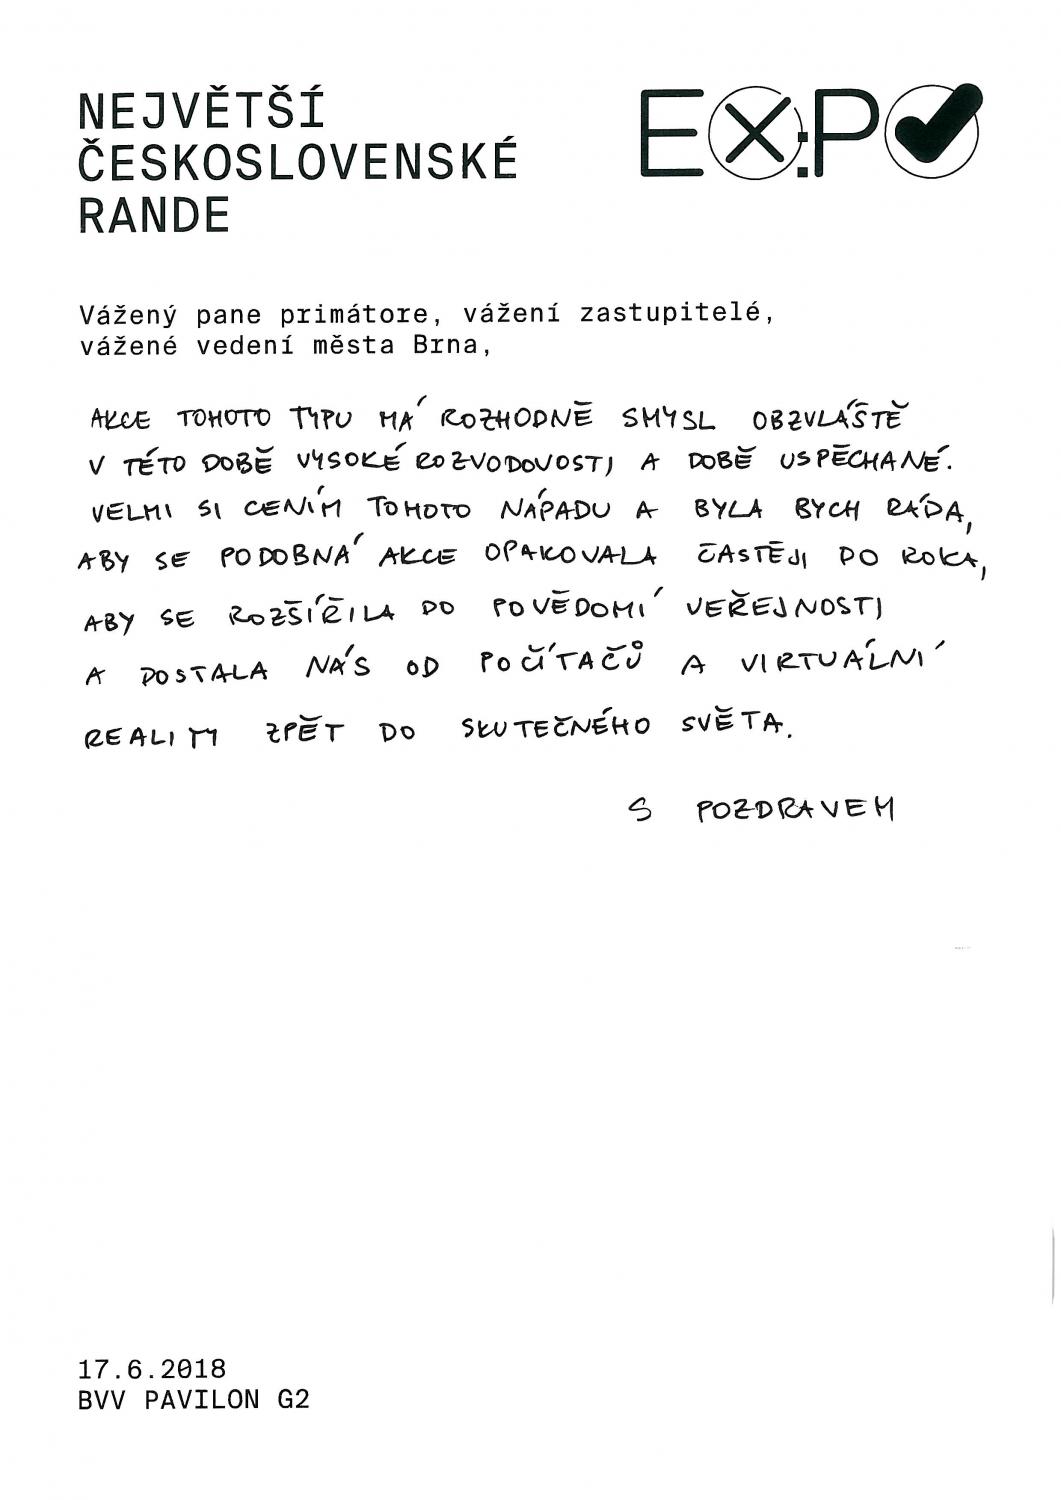 NEJVĚTŠÍ
ČESKOSLOVENSKÉ
RANDE
EX:PO
Vážený pane primátore, vážení zastupitelé,
vážené vedení města Brna,
AKCE TOHOTO TYPU MÁ ROZHODNĚ SMYSL OBZVLÁŠTĚ
V TÉTO DOBĚ VYSOKÉ ROZVODOVOSTI A DOBĚ USPĚCHANÉ.
VELMI SI CENÍM TOHOTO NÁPADU A BYLA BYCH RÁDA,
ABY SE PODOBNÁ AKCE OPAKOVALA ČASTĚJI DO ROKA,
ABY SE ROZŠÍŘILA DO POVĚDOMÍ VEŘEJNOSTI
A DOSTALA NÁS OD POČÍTAČŮ A VIRTUÁLNÍ
REALITY ZPĚT DO SKUTEČNÉHO SVĚTA.
S POZDRAVEM
17.6.2018
BVV PAVILON G2